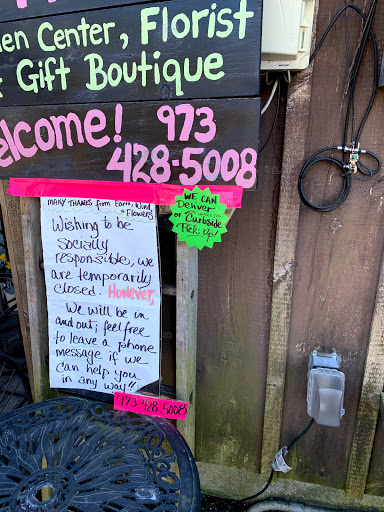 en Center, Florist
& Gift Boutique
elcome! 973
428-5008
MANY THANKS from Earth, Wind
& Flowers
Wishing to be
socially
responsible, we
are temporarily
closed. However,
We will be in
and out; feel free
to leave a phone
message if we
can help you
in any way!!
973-428-5008
WE CAN
Deliver
or Curbside
Pick Up!